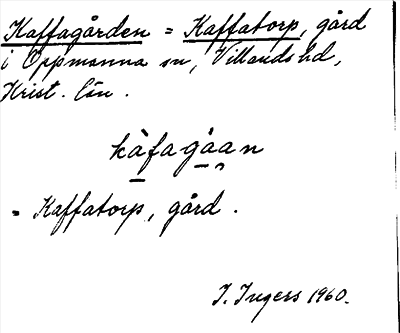 Kaffagården = Kaffatorp, gård
i Oppmanna sn, Villands hd,
Krist. län.
kàfagåan
= Kaffatorp, gård.
I. Ingers 1960.